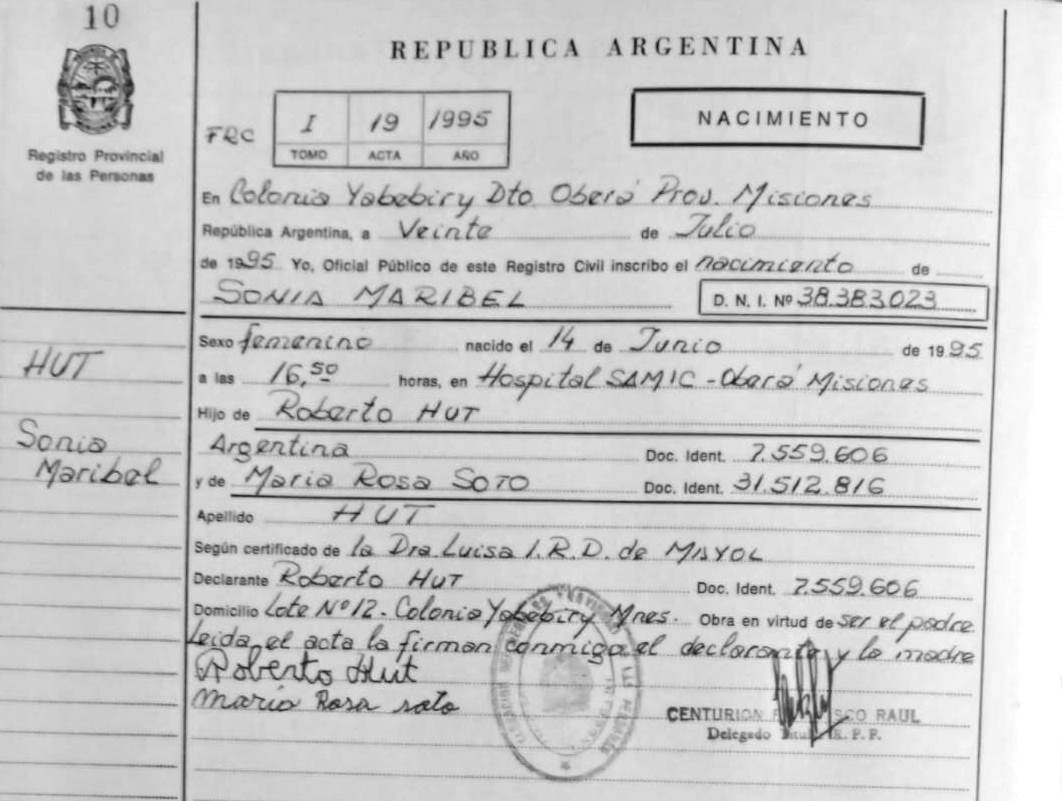 10
REPUBLICA ARGENTINA
Registro Provincial
de las Personas
FRC
I 19 1995
TOMO ACTA AÑO
NACIMIENTO
En Colonia Yabebiry Dto. Oberá Prov. Misiones
República Argentina, a Veinte de Julio
de 1995 Yo, Oficial Público de este Registro Civil inscribo el nacimiento de
SONIA MARIBEL D. N. I. Nº 38.383.023
Sexo femenino nacido el 14 de Junio de 1995
a las 16,50 horas, en Hospital SAMIC - Oberá Misiones
Hijo de Roberto HUT
Argentina Doc. Ident. 7.559.606
y de Maria Rosa SOTO Doc. Ident. 31.512.816
Apellido HUT
Según certificado de la Dra. Luisa I.R.D. de MAYOL
Declarante Roberto HUT Doc. Ident. 7.559.606
Domicilio Lote Nº 12 - Colonia Yabebiry Mnes. Obra en virtud de ser el padre
Leida el acta la firman conmigo el declarante y la madre
Roberto Hut
Maria Rosa soto
CENTURION RAUL
Delegado
HUT
Sonia
Maribel